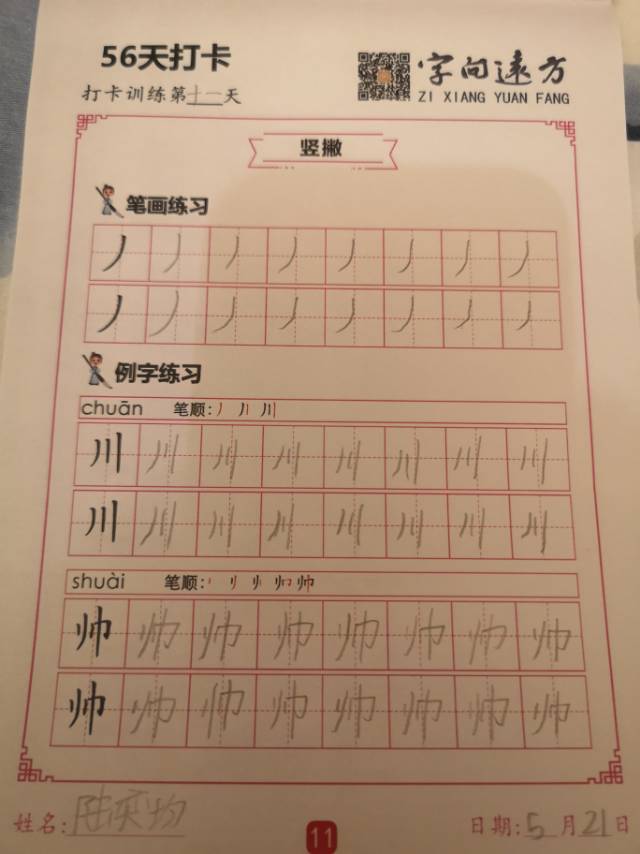 56天打卡
字向远方
打卡训练第十一天
ZI XIANG YUAN FANG
竖撇
笔画练习
丿 丿 丿 丿 丿 丿 丿 丿
丿 丿 丿 丿 丿 丿 丿 丿
例字练习
chuān 笔顺:丿 丿丨 川
川 川 川 川 川 川 川 川
川 川 川 川 川 川 川 川
shuài 笔顺:
帅 帅 帅 帅 帅 帅 帅 帅
帅 帅 帅 帅 帅 帅 帅 帅
姓名:
11
日期:5月21日